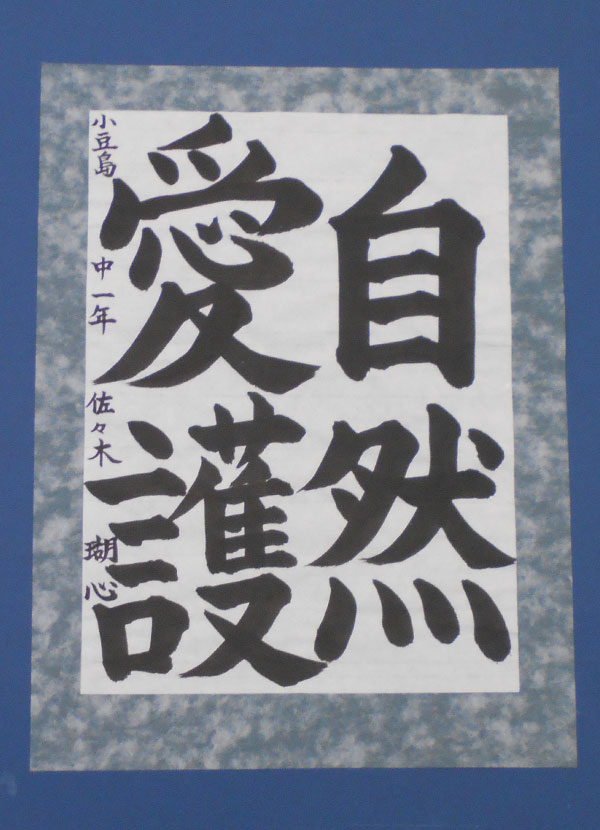 自然
愛護
小豆島 中一年 佐々木 瑚心